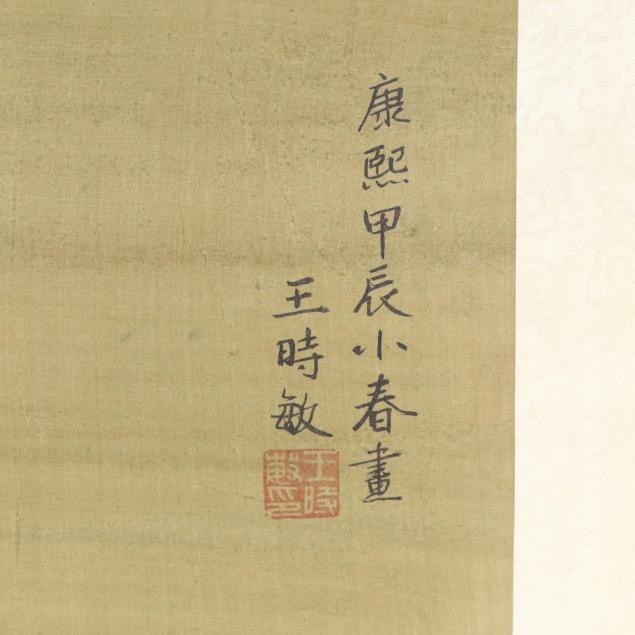 康熙甲辰小春畫
王時敏
王時敏印